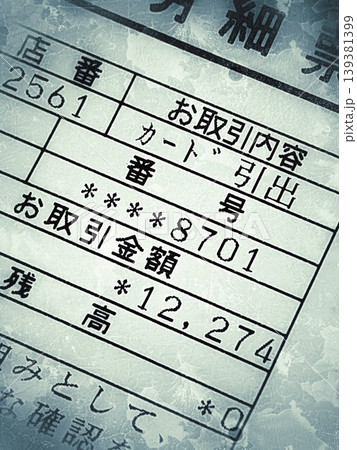 明細票
店番 お取引内容
2561 カード 引出
番号
****8701
お取引金額
*12,274
残高
*0
組みとして、
な確認を
PIXTA
139381399